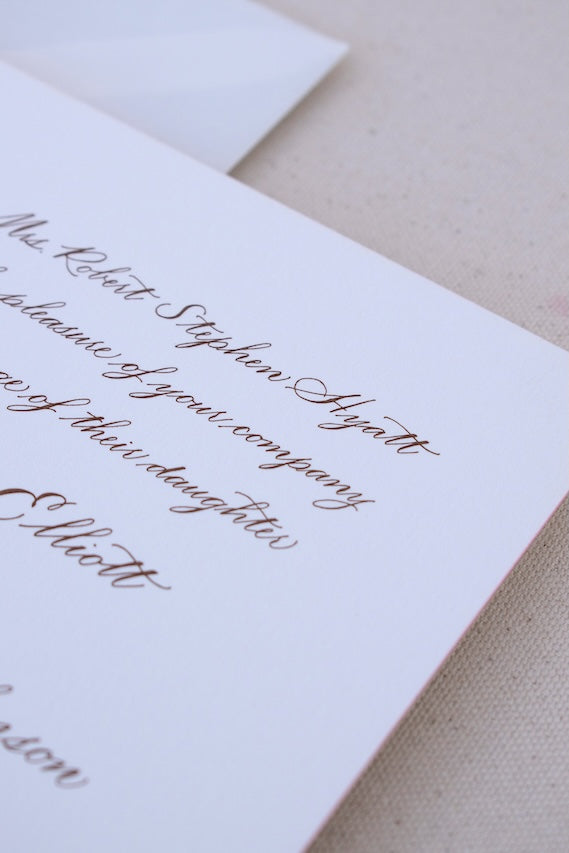 Mrs. Robert Stephen Hyatt
pleasure of your company
of their daughter
Elliott